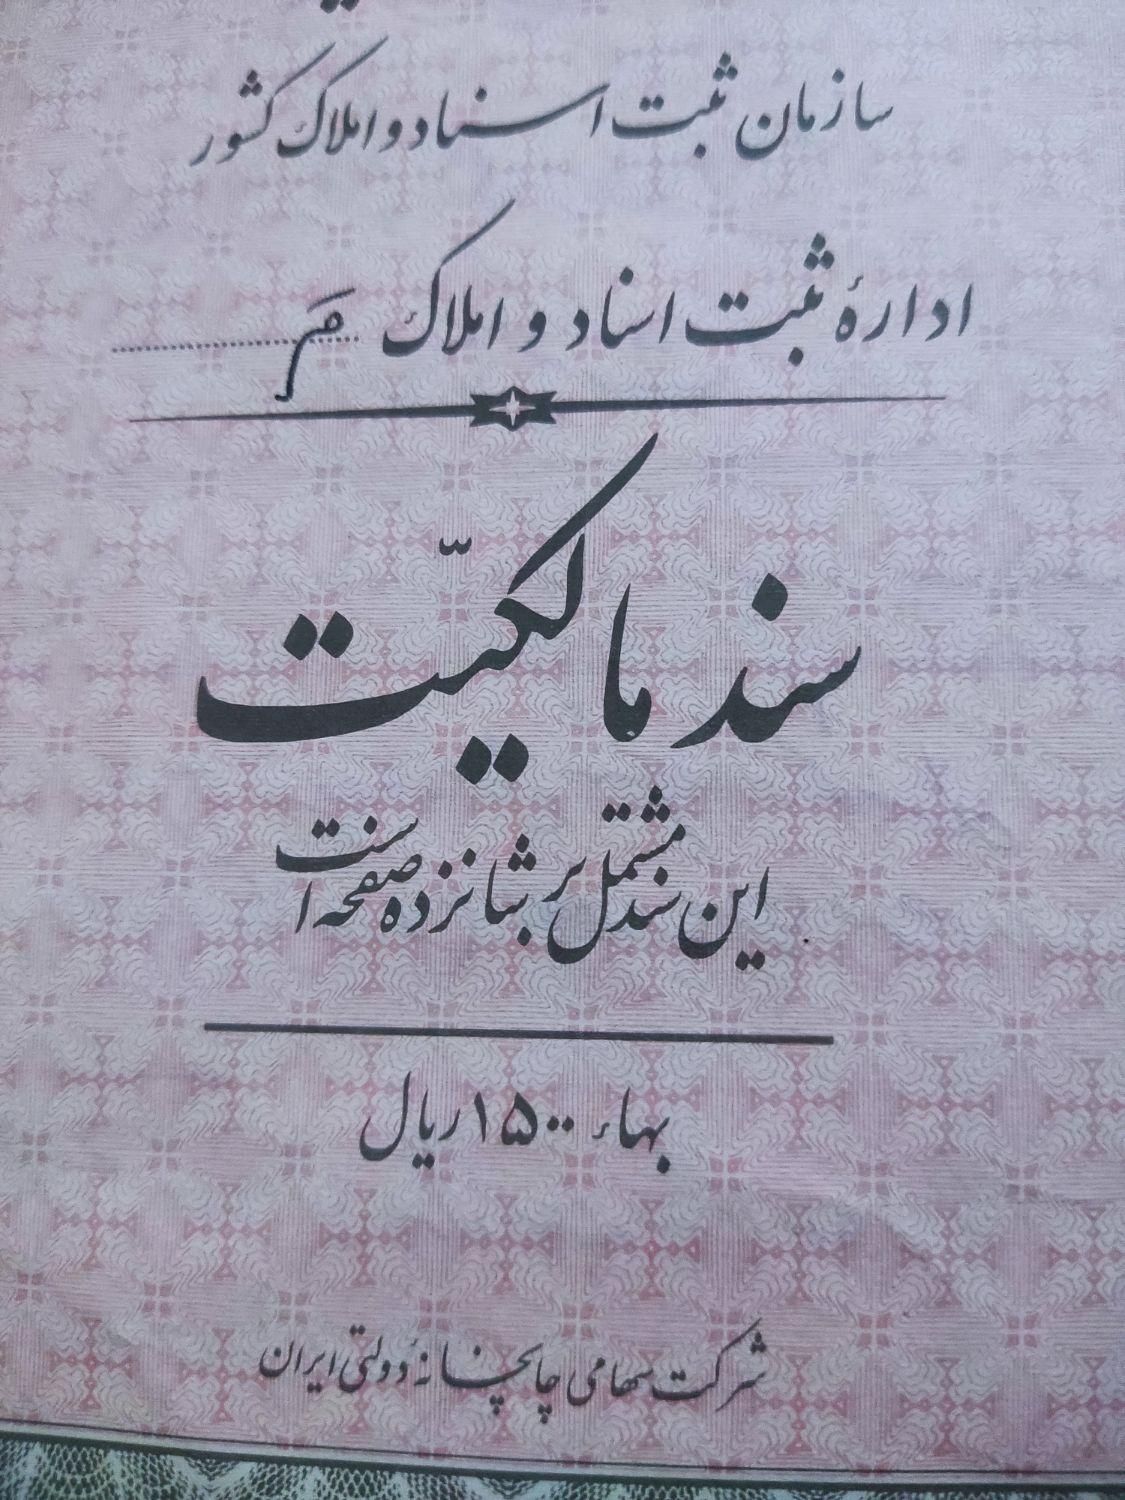 سازمان ثبت اسناد و املاک کشور
ادارهٔ ثبت اسناد و املاک
سند مالکیّت
این سند مشتمل بر شانزده صفحه است
بهاء ۱۵۰۰ ریال
شرکت سهامی چاپخانهٔ دولتی ایران